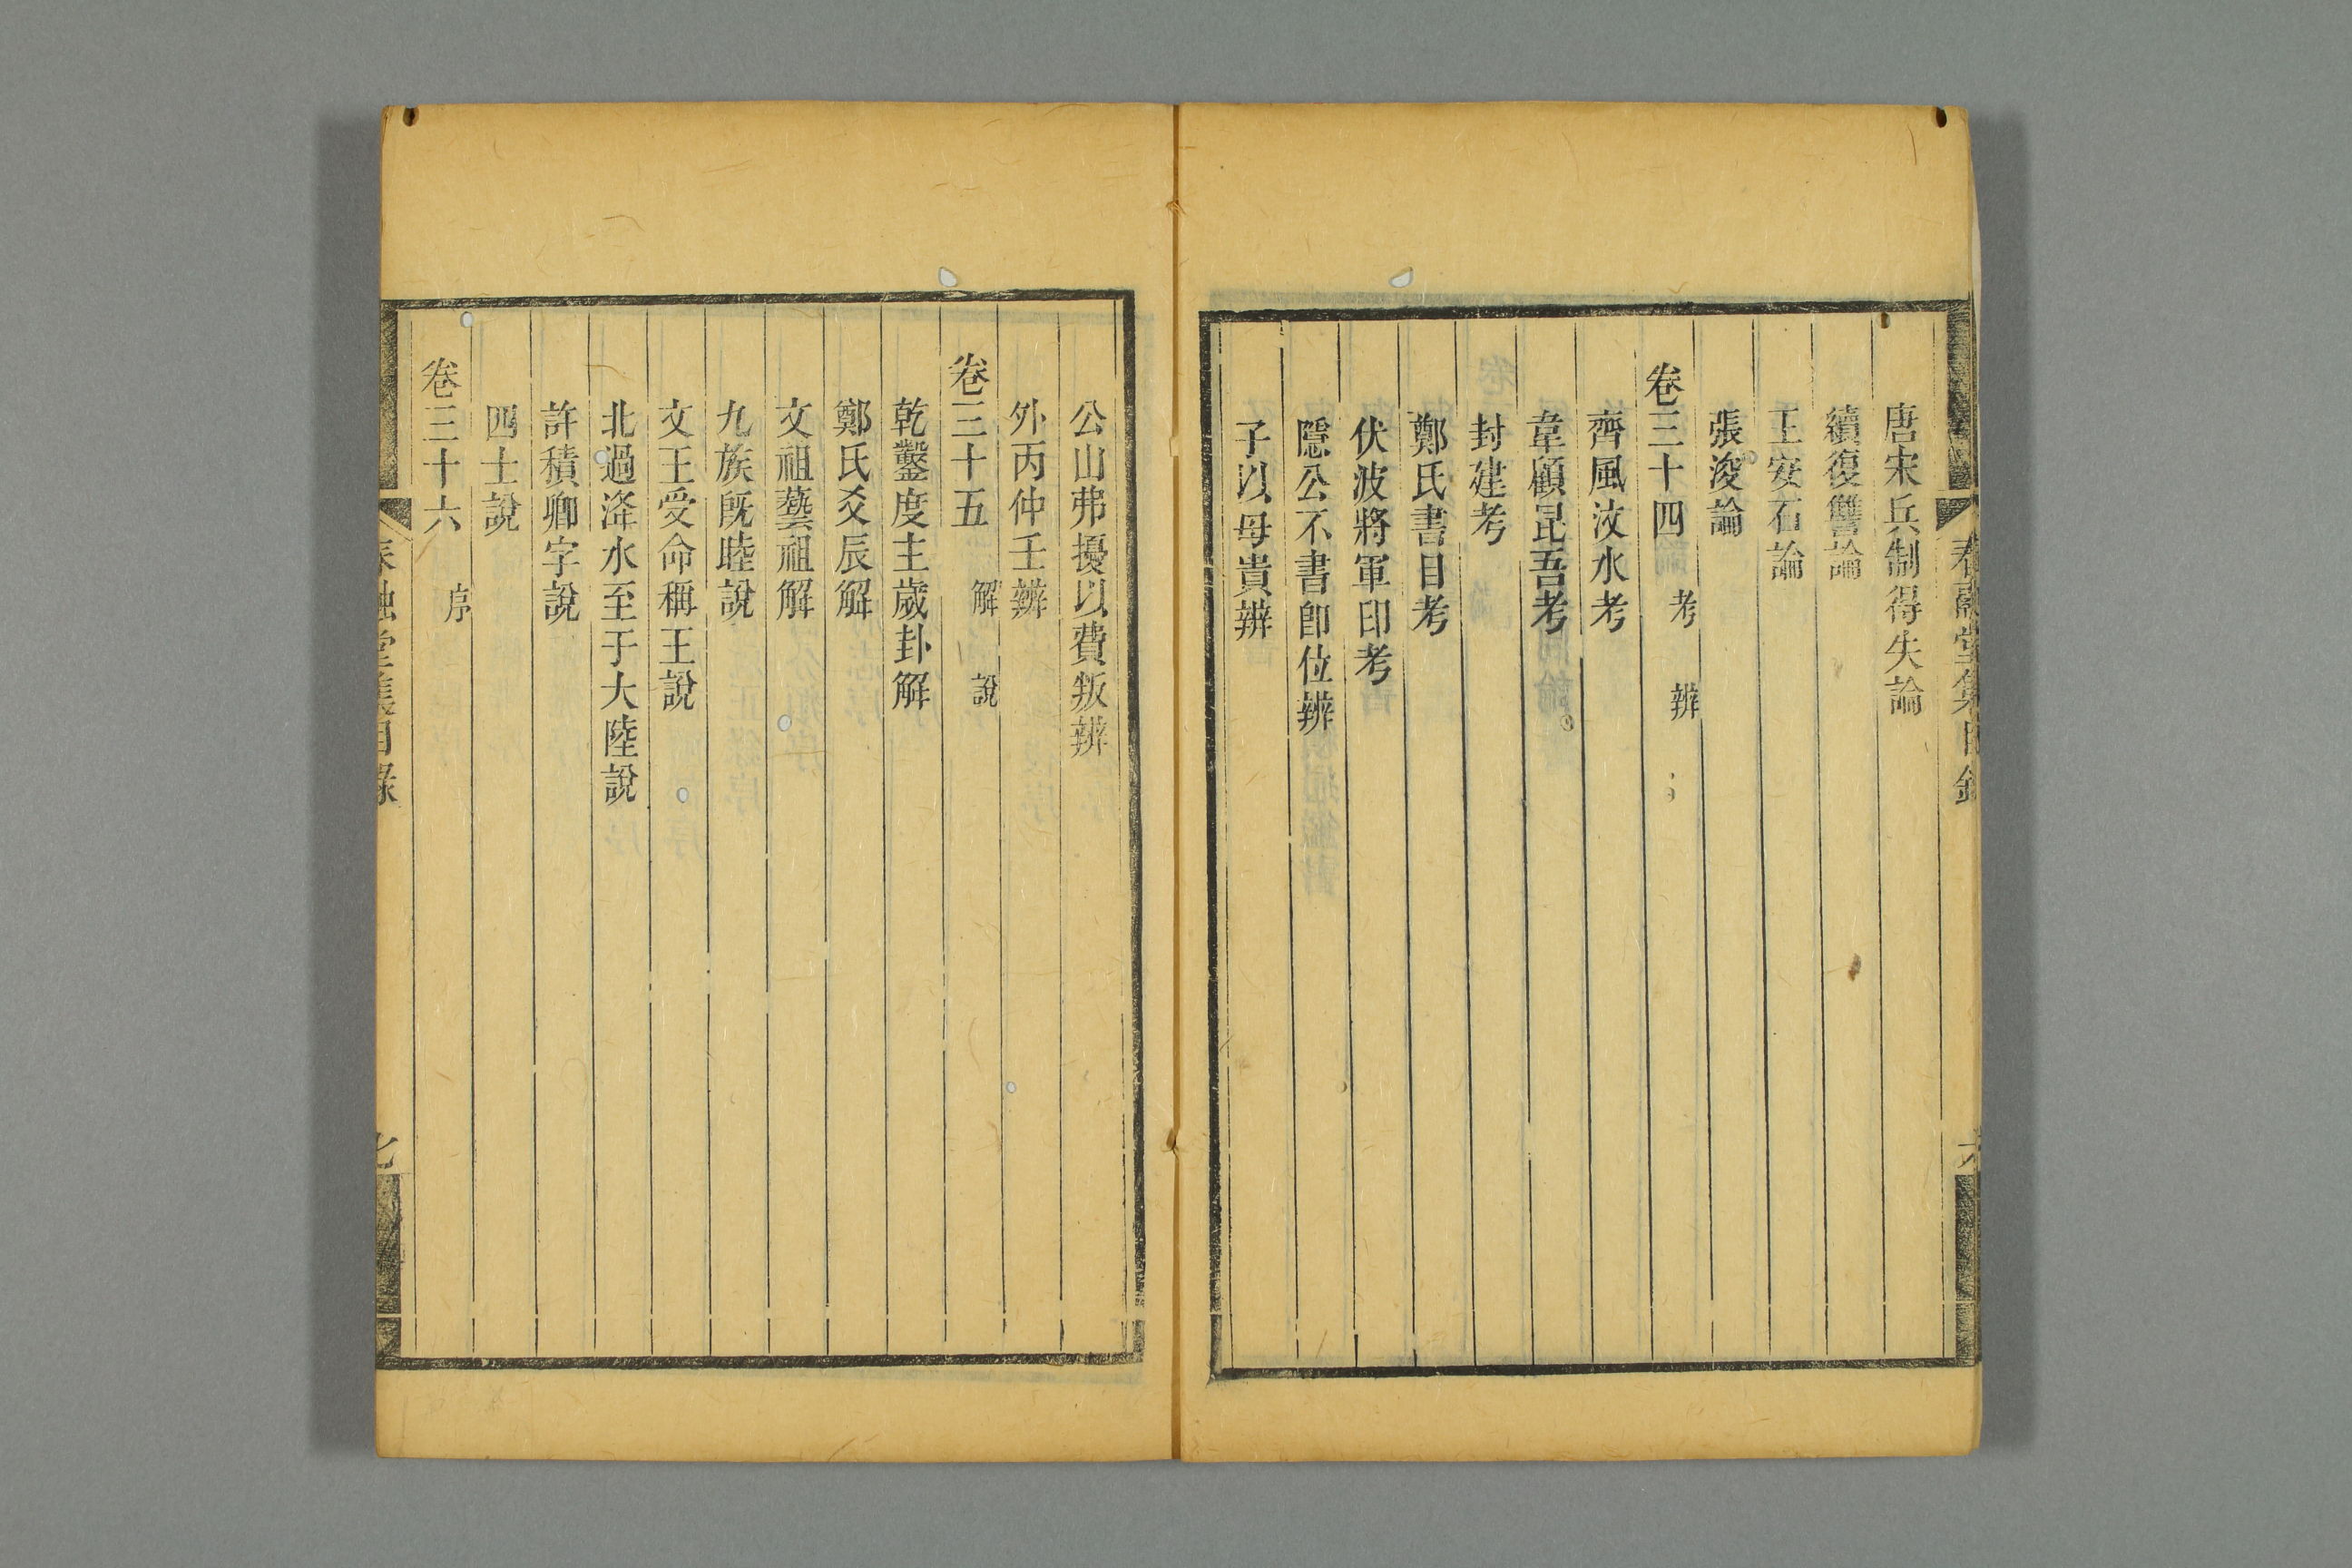 春融堂集目錄
六
唐宋兵制得失論
續復讐論
王安石論
張浚論
卷三十四 考 辨
齊風汶水考
韋顧昆吾考
封建考
鄭氏書目考
伏波將軍印考
隱公不書即位辨
子以母貴辨
公山弗擾以費叛辨
外丙仲壬辨
卷三十五 解 說
乾鑿度主歲卦解
鄭氏爻辰解
文祖藝祖解
九族旣睦說
文王受命稱王說
北過洚水至于大陸說
許積卿字說
四士說
卷三十六 序
春融堂集目錄
七